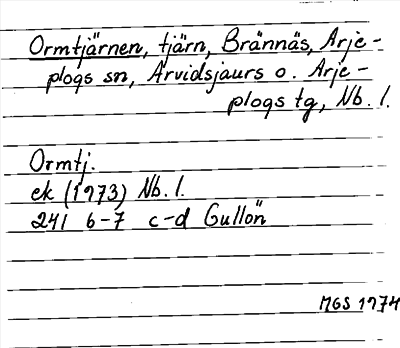 Ormtjärnen, tjärn, Brännäs, Arje-
plogs sn, Arvidsjaurs o. Arje-
plogs tg, Nb. l.
Ormtj.
ek (1973) Nb. l.
241 6-7 c-d Gullön
MGS 1974